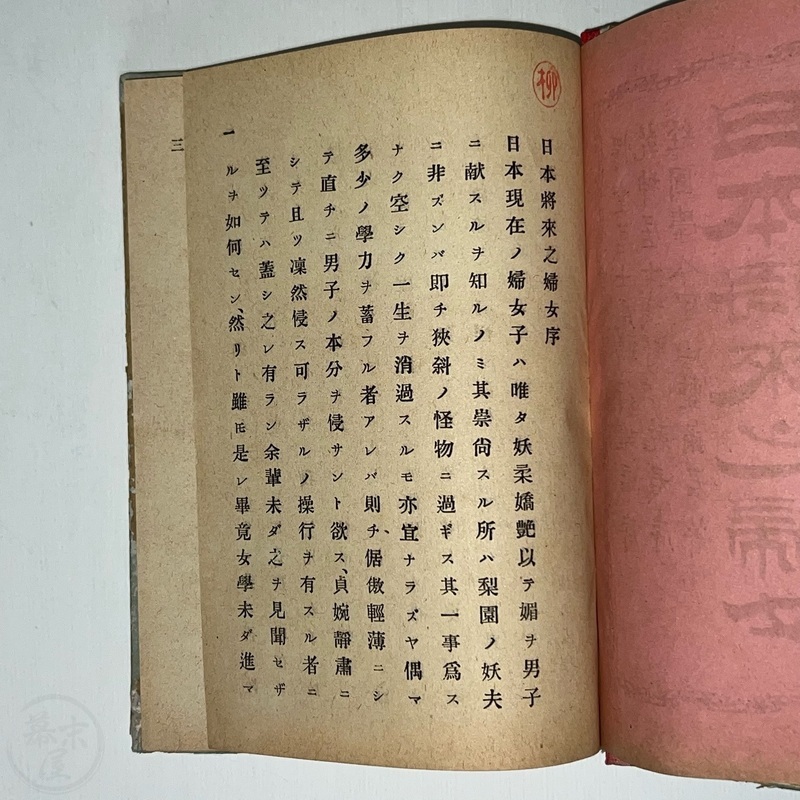 日本將來之婦女序
日本現在ノ婦女子ハ唯タ妖柔嬌艶以テ媚ヲ男子
ニ献スルヲ知ルノミ其崇尙スル所ハ梨園ノ妖夫
ニ非ズンバ即チ狹斜ノ怪物ニ過ギス其一事爲ス
ナク空シク一生ヲ消過スルモ亦宜ナラズヤ偶マ
多少ノ學力ヲ蓄フル者アレバ則チ、倨傲輕薄ニシ
テ直チニ男子ノ本分ヲ侵サント欲ス、貞婉靜肅ニ
シテ且ツ凜然侵ス可ラザルノ操行ヲ有スル者ニ
至ツテハ蓋シ之レ有ラン余輩未ダ之ヲ見聞セザ
ルヲ如何セン、然リト雖モ是レ畢竟女學未ダ進マ
一
三
幕末屋